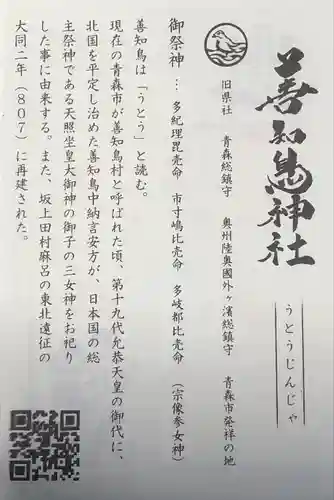 善知鳥神社
うとうじんじゃ
旧県社　青森総鎮守　奥州陸奥國外ヶ濱総鎮守　青森市発祥の地
御祭神…多紀理毘売命　市寸嶋比売命　多岐都比売命　（宗像参女神）
善知鳥は「うとう」と読む。
現在の青森市が善知鳥村と呼ばれた頃、第十九代允恭天皇の御代に、
北国を平定し治めた善知鳥中納言安方が、日本国の総
主祭神である天照坐皇大御神の御子の三女神をお祀り
した事に由来する。また、坂上田村麻呂の東北遠征の
大同二年（８０７）に再建された。